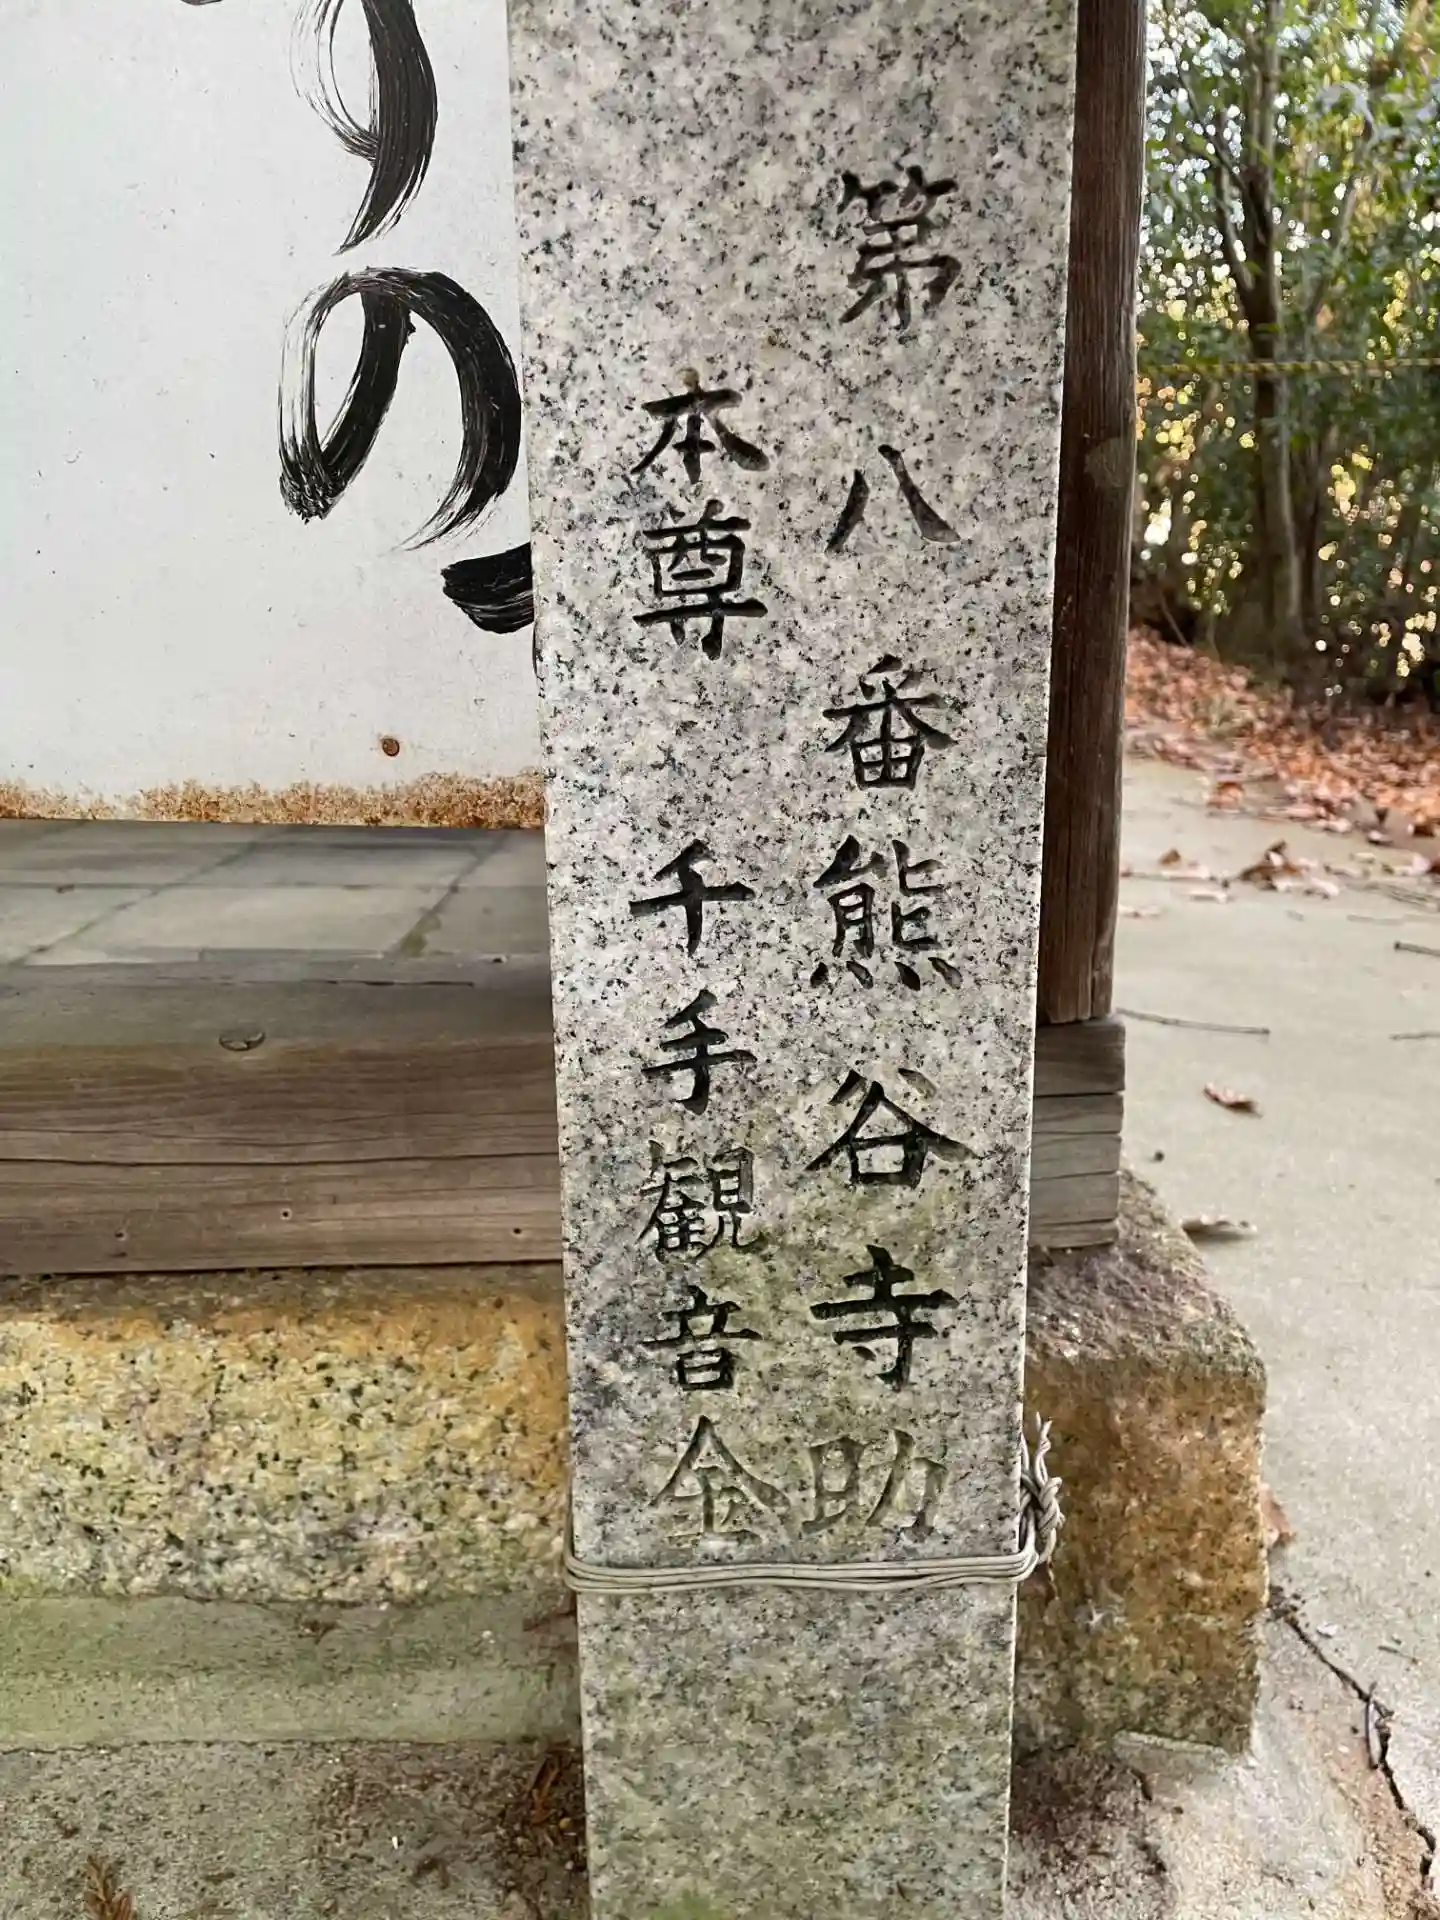 第八番熊谷寺助
本尊 千手観音金
すの